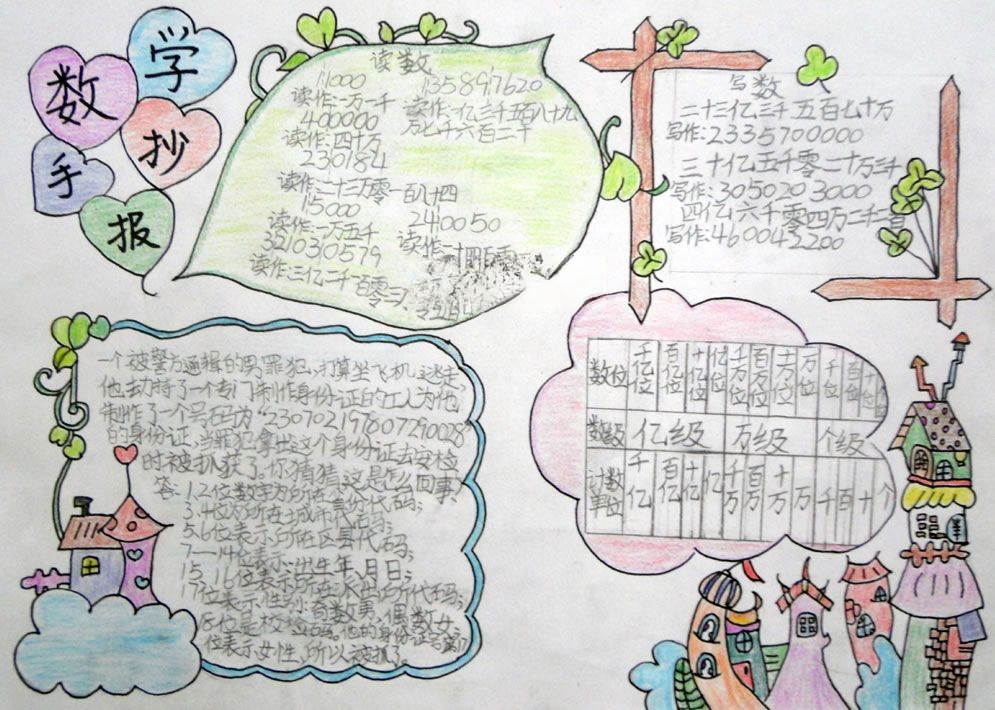 数学
手抄
报
读数
11000
读作:一万一千
400000
读作:四十万
230184
读作:二十三万零一百八十四
15000
读作:一万五千
3210310579
读作:三亿二千一百零三
135897620
读作:一亿三千五百八十九
万七千六百二十
2410050
读作:二百四十
写数
二十三亿三千五百七十万
写作:2335700000
三十亿五千零二十万三千
写作:305020 3000
四亿六千零四万二千二百
写作:460042200
一个被警方通缉的男罪犯,打算坐飞机逃走,
他劫持了一个专门制作身份证的工人为他
制作了一个号码为“230702197807290028”
的身份证,当罪犯拿出这个身份证去安检
时被抓获了,你猜猜,这是怎么回事?
答:1.2位数字为所在省的代码;
3.4位为所在城市代码;
5.6位表示:所在区县代码;
7—14位表示:出生年、月、日;
15、16位表示:所在派出所代码;
17位表示性别:奇数男,偶数女;
18位是校验码。他的身份证号第17
位表示女性,所以被抓了。
数位 千亿位 百亿位 十亿位 亿位 千万位 百万位 十万位 万位 千位 百位 十位 个位
数级 亿级 万级 个级
计数单位 千亿 百亿 十亿 亿 千万 百万 十万 万 千 百 十 个